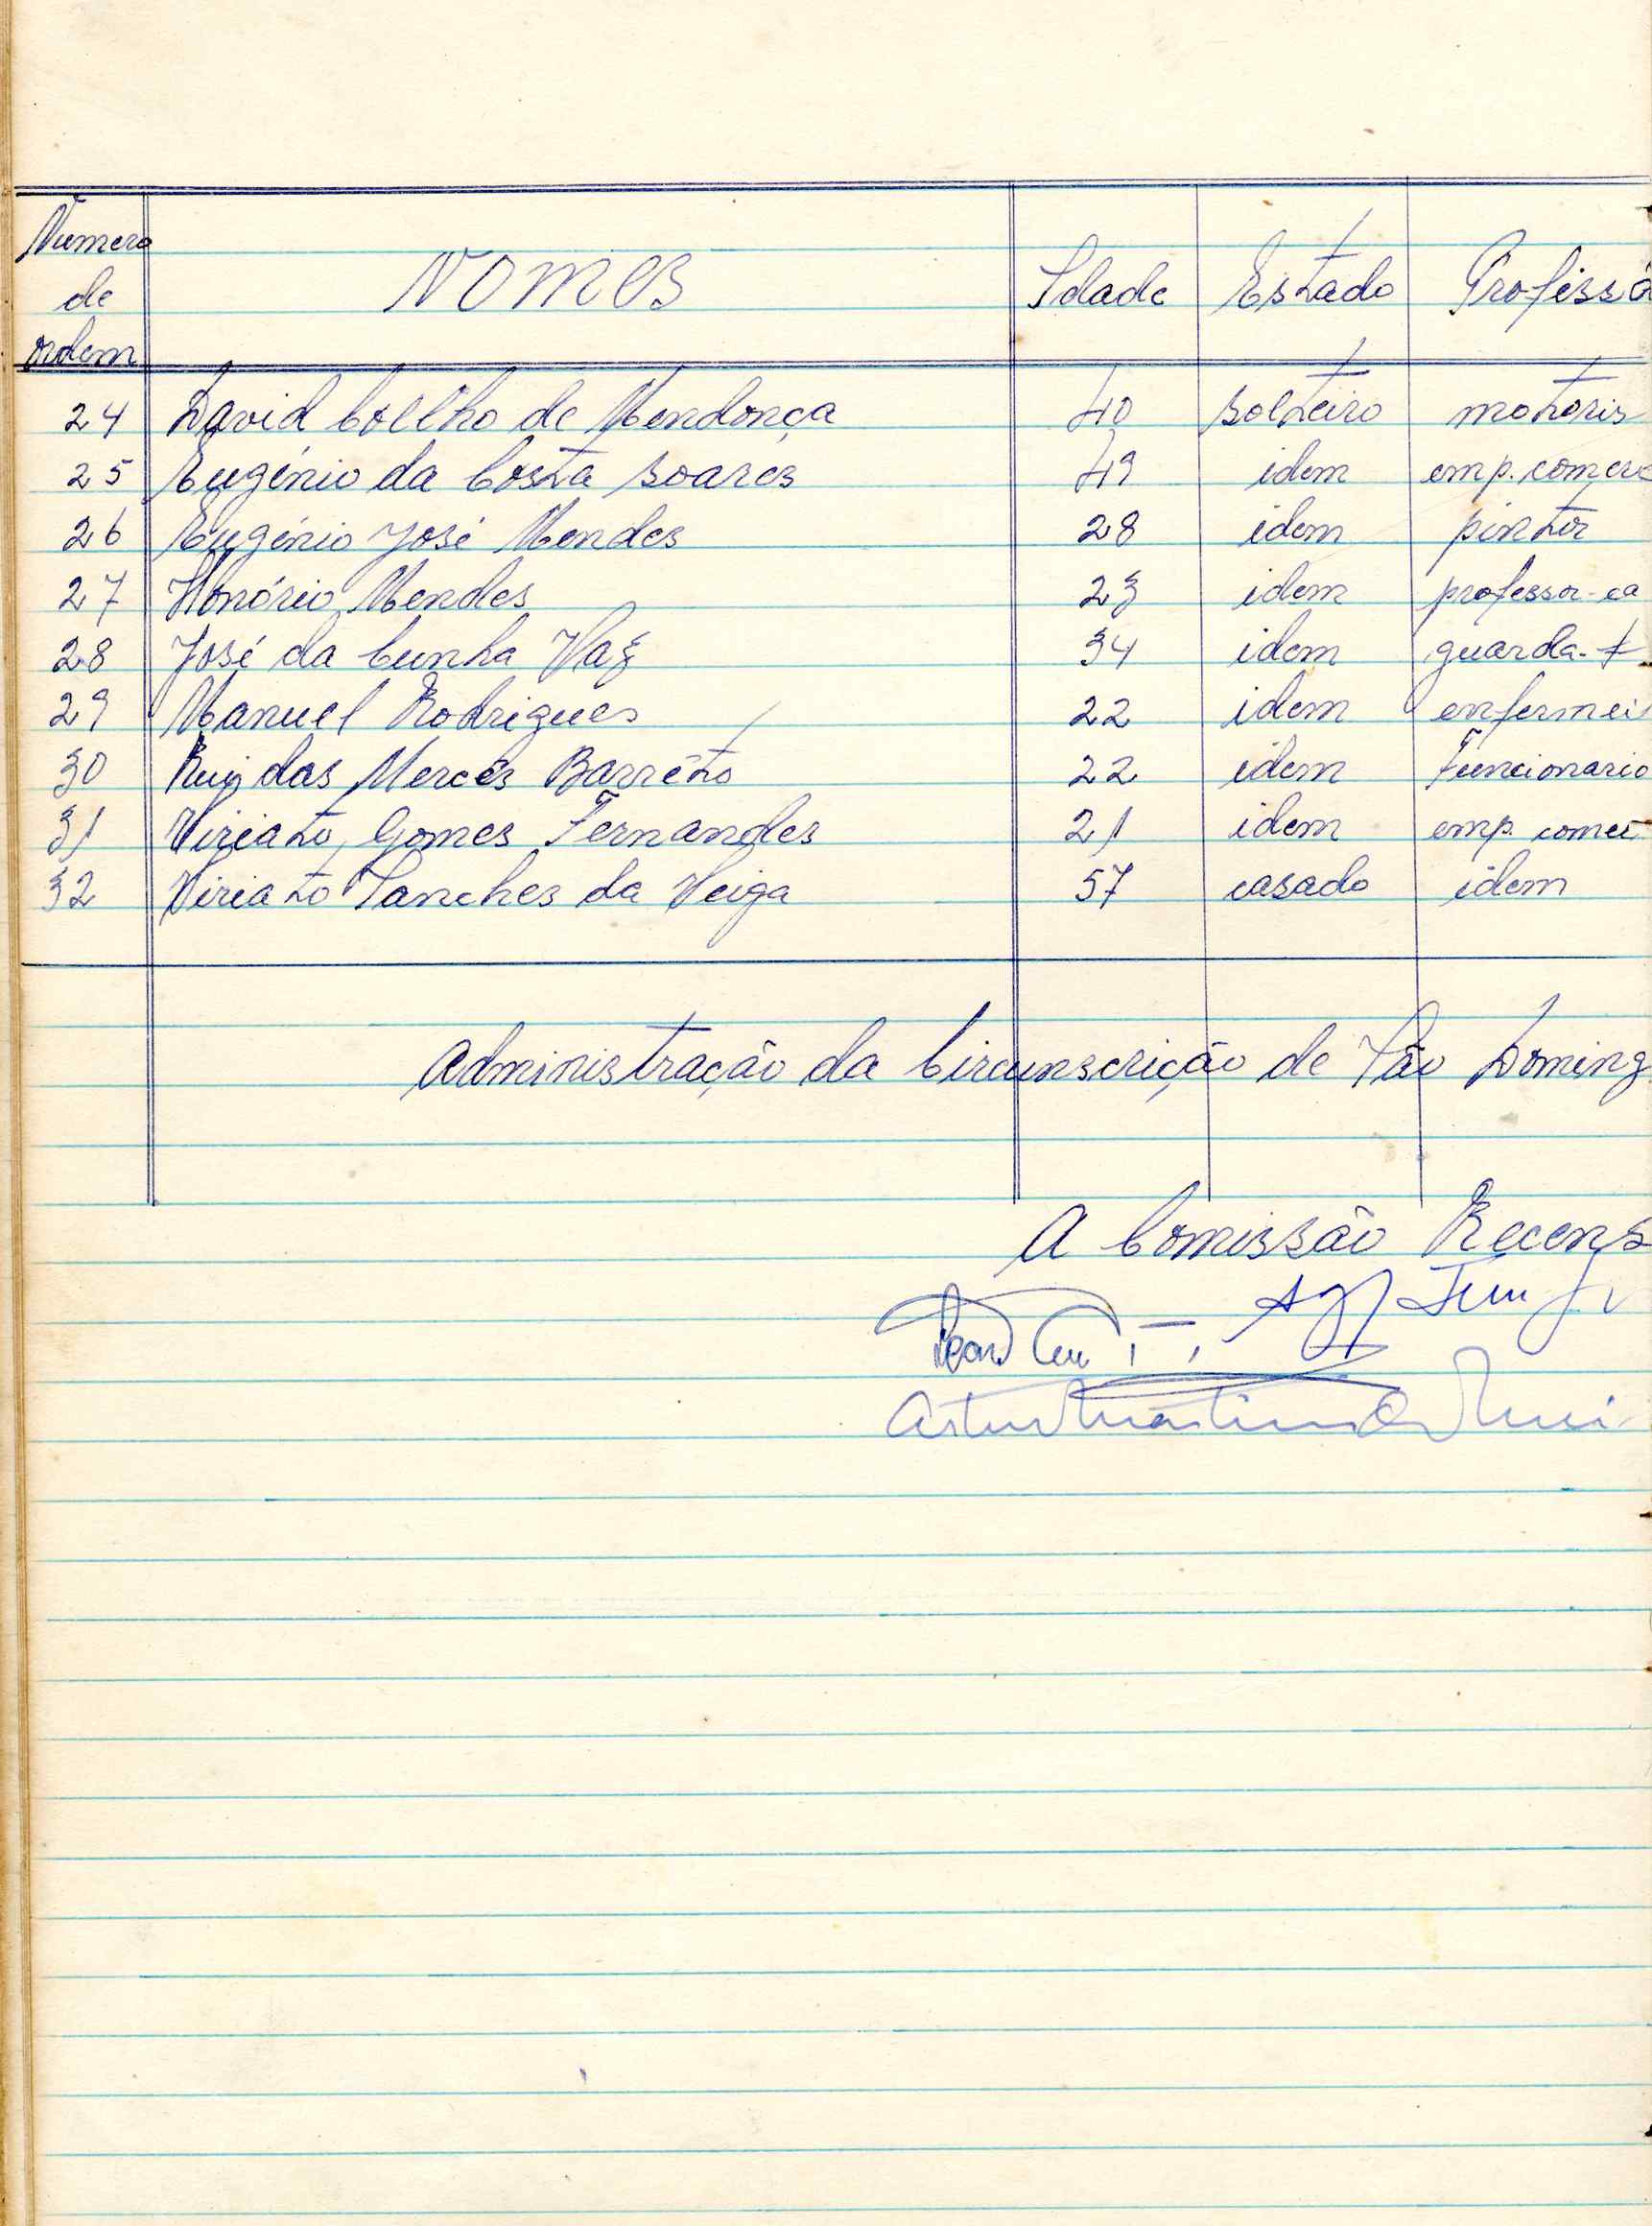 Numero de ordem NOMES Idade Estado Profissã
24 David Coelho de Mendonça 40 solteiro motoris
25 Eugénio da Costa Soares 49 idem emp. comerc
26 Eugénio José Mendes 28 idem pintor
27 Honório Mendes 23 idem professor-ca
28 José da Cunha Vaz 34 idem guarda-f
29 Manuel Rodrigues 22 idem enfermei
30 Ruy das Mercês Barrêto 22 idem Funcionario
31 Viriato Gomes Fernandes 21 idem emp. comer
32 Viriato Sanches da Veiga 57 casado idem
Administração da Circunscrição de São Doming
A Comissão Recens